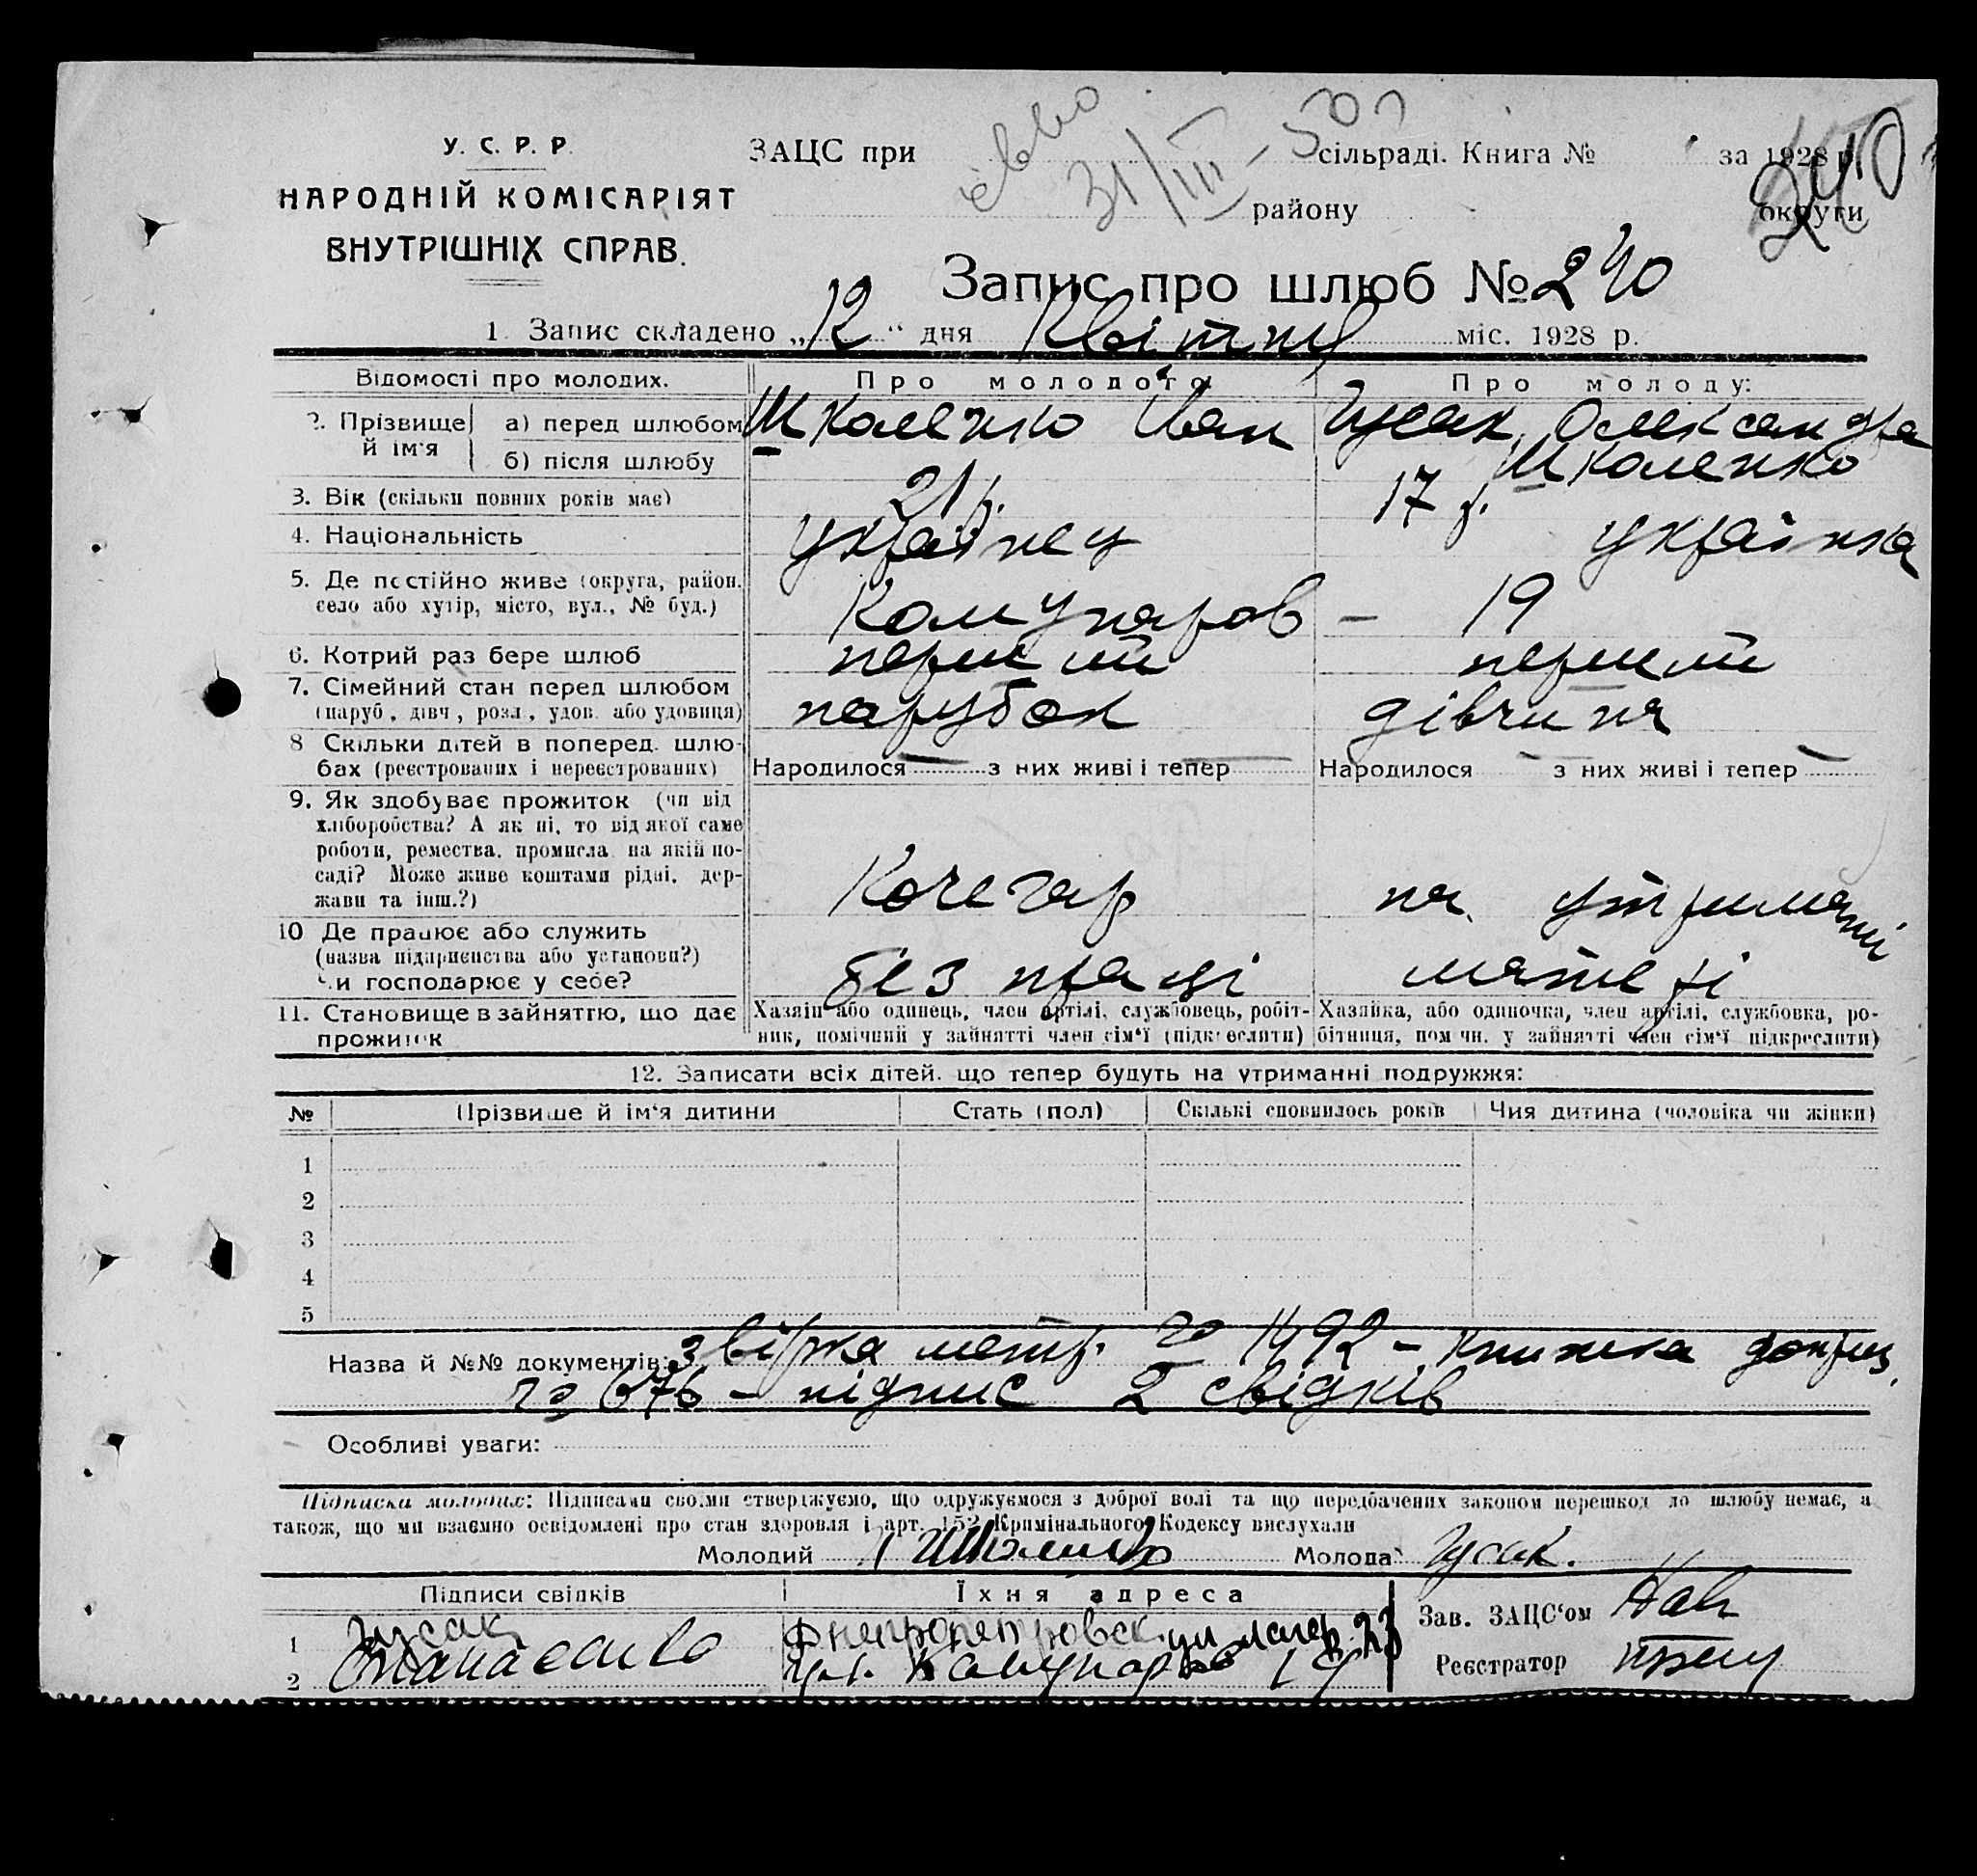 У. С. Р. Р.
НАРОДНІЙ КОМІСАРІЯТ
ВНУТРІШНІХ СПРАВ.
ЗАЦС при сільраді. Книга № за 1928 р.
31/III - 50 р
району округи
240
Запис про шлюб № 240
1. Запис складено „12" дня Квітня міс. 1928 р.
Відомості про молодих. Про молодого: Про молоду:
2. Прізвище й ім'я а) перед шлюбом Школенко Іван Гусак Олександра
б) після шлюбу Школенко
3. Вік (скільки повних років має) 21 р. 17 р.
4. Національність українец українка
5. Де постійно живе (округа, район.
село або хутір, місто, вул., № буд.) Комунаров - 19
6. Котрий раз бере шлюб перший перший
7. Сімейний стан перед шлюбом
(паруб., дівч., розл., удов. або удовиця) парубок дівчина
8 Скільки дітей в поперед. шлю-
бах (реєстрованих і нереєстрованих) Народилося — з них живі і тепер — Народилося — з них живі і тепер —
9. Як здобуває прожиток (чи від
хліборобства? А як ні, то від якої саме
роботи, ремества, промисла на якій по-
саді? Може живе коштами рідні, дер-
жави та інш.?) Кочегар на утриманні
10 Де працює або служить
(назва підприємства або установи?)
Чи господарює у себе? без праці матері
11. Становище в зайняттю, що дає
прожиток
Хазяїн або одинець, член артілі, службовець, робіт-
ник, помічний у зайнятті член сім'ї (підкреслити)
Хазяйка, або одиночка, член артілі, службовка, ро-
бітниця, пом чн. у зайнятті член сім'ї підкреслити)
12. Записати всіх дітей, що тепер будуть на утриманні подружжя:
№ Прізвище й ім'я дитини Стать (пол) Скількі сповнилось років Чия дитина (чоловіка чи жінки)
1
2
3
4
5
Назва й №№ документів: звірка метр. № 1492 - книжка
№ 676 - підпис 2 свідків
Особливі уваги:
Підписка молодих: Підписами своїми стверджуємо, що одружуємося з доброї волі та що передбачених законом перешкод до шлюбу немає, а
також, що ми взаємно освідомлені про стан здоровля і арт. 152 Кримінального Кодексу вислухали
Молодий Молода Гусак.
Підписи свідків Їхня адреса Зав. ЗАЦС'ом
1 Гусак Днепропетровск ул
2 ул. Комунаров 19 Реєстратор